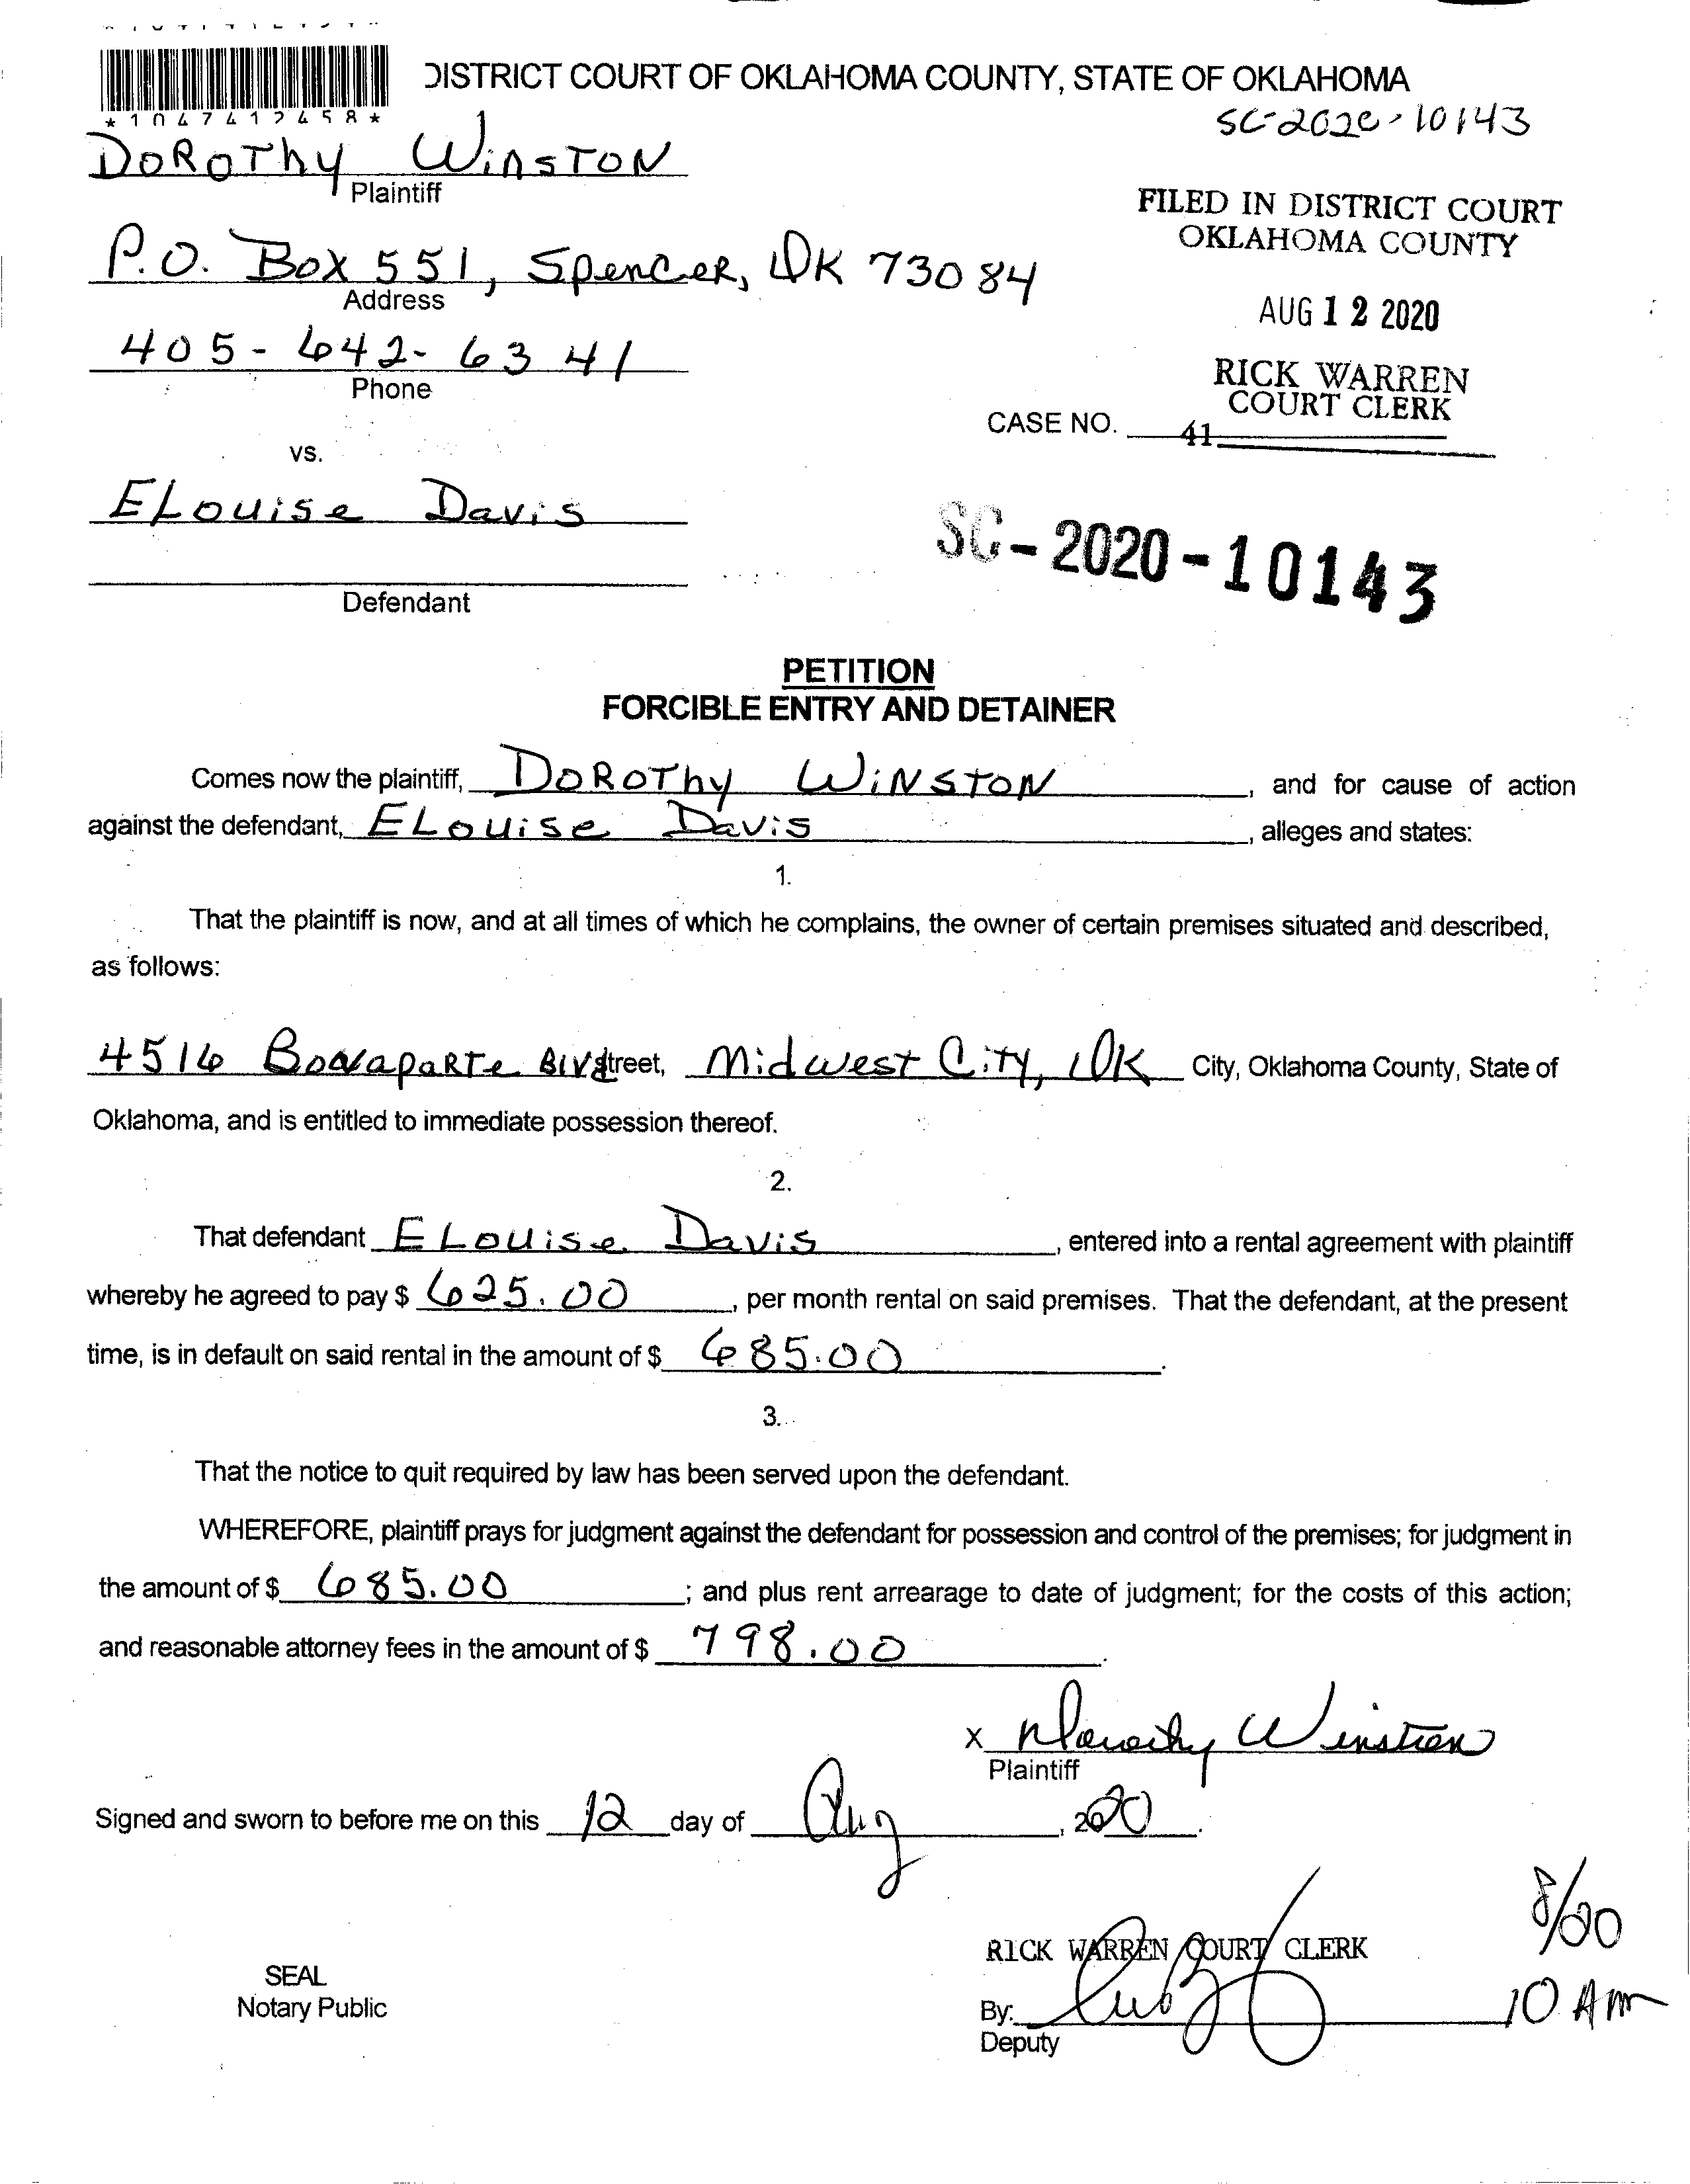 DISTRICT COURT OF OKLAHOMA COUNTY, STATE OF OKLAHOMA
*1047412458*
SC-2020-10143
DOROTHY WINSTON
Plaintiff
FILED IN DISTRICT COURT
OKLAHOMA COUNTY
P.O. Box 551, Spencer, OK 73084
Address
AUG 12 2020
405-642-6341
Phone
RICK WARREN
COURT CLERK
CASE NO.
41
vs.
ELouise Davis
SC-2020-10143
Defendant
PETITION
FORCIBLE ENTRY AND DETAINER
Comes now the plaintiff, DOROTHY WINSTON, and for cause of action
against the defendant, ELouise Davis, alleges and states:
1.
That the plaintiff is now, and at all times of which he complains, the owner of certain premises situated and described,
as follows:
4516 Bonaparte Blv Street, Midwest City, OK City, Oklahoma County, State of
Oklahoma, and is entitled to immediate possession thereof.
2.
That defendant ELouise Davis, entered into a rental agreement with plaintiff
whereby he agreed to pay $ 625.00, per month rental on said premises. That the defendant, at the present
time, is in default on said rental in the amount of $ 685.00.
3.
That the notice to quit required by law has been served upon the defendant.
WHEREFORE, plaintiff prays for judgment against the defendant for possession and control of the premises; for judgment in
the amount of $ 685.00; and plus rent arrearage to date of judgment; for the costs of this action;
and reasonable attorney fees in the amount of $ 798.00.
x Dorothy Winston
Plaintiff
Signed and sworn to before me on this 12 day of Aug, 2020.
8/20
RICK WARREN COURT CLERK
SEAL
Notary Public
10 Am
By:
Deputy